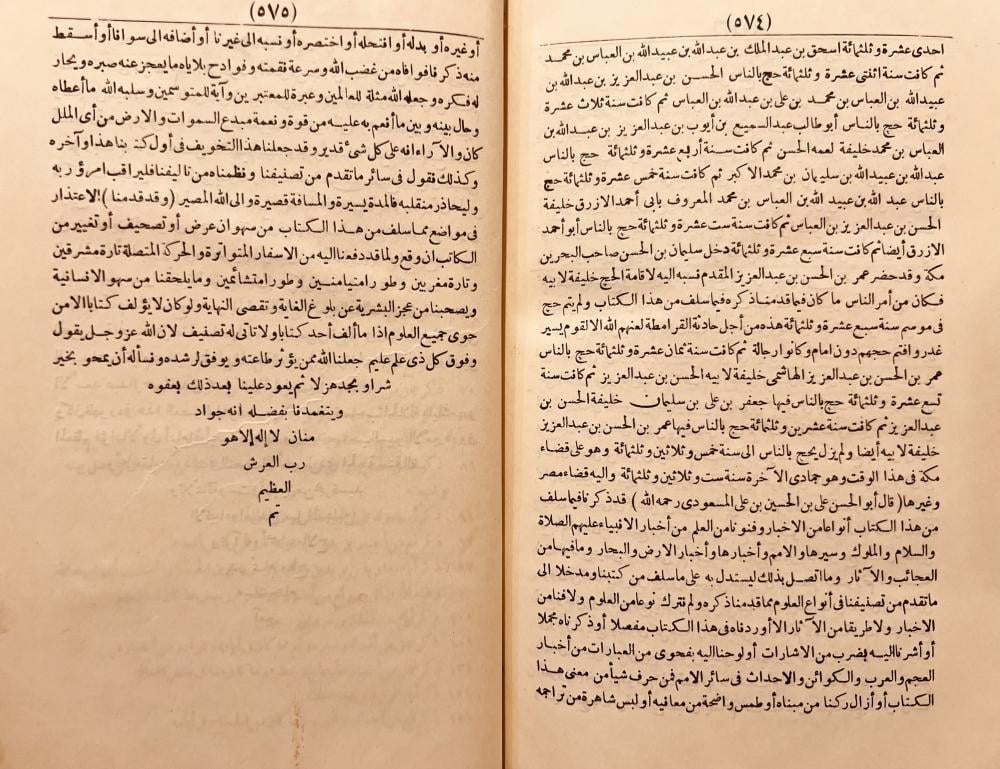 (٥٧٤)
احدى عشرة وثلثمائة اسحق بن عبد الملك بن عبد الله بن عبيد الله بن العباس بن محمد
ثم كانت سنة اثنتى عشرة وثلثمائة حج بالناس الحسن بن عبد العزيز بن عبد الله بن
عبيد الله بن العباس بن محمد بن على بن عبد الله بن العباس ثم كانت سنة ثلاث عشرة
وثلثمائة حج بالناس أبو طالب عبد السميع بن أيوب بن عبد العزيز بن عبد الله بن
العباس بن محمد خليفة لعمه الحسن ثم كانت سنة أربع عشرة وثلثمائة حج بالناس
عبد الله بن عبيد الله بن سليمان بن محمد الاكبر ثم كانت سنة خمس عشرة وثلثمائة حج
بالناس عبد الله بن عبيد الله بن العباس بن محمد المعروف بابى أحمد الازرق خليفة
الحسن بن عبد العزيز بن العباس ثم كانت سنة ست عشرة وثلثمائة حج بالناس أبو أحمد
الازرق أيضا ثم كانت سنة سبع عشرة وثلثمائة دخل سليمان بن الحسن صاحب البحرين
مكة وقد حضر عمر بن الحسن بن عبد العزيز المقدم نسبه اليه لاقامة الحج خليفة لابيه
فكان من أمر الناس ما كان فيما قدمنا ذكره فيما سلف من هذا الكتاب ولم يتم حج
فى موسم سنة سبع عشرة وثلثمائة هذه من أجل حادثة القرامطة لعنهم الله الا لقوم يسير
غدر وافتم حجهم دون امام وكانوا رجالة ثم كانت سنة ثمان عشرة وثلثمائة حج بالناس
عمر بن الحسن بن عبد العزيز الهاشمى خليفة لابيه الحسن بن عبد العزيز ثم كانت سنة
تسع عشرة وثلثمائة حج بالناس فيها جعفر بن على بن سليمان خليفة الحسن بن
عبد العزيز ثم كانت سنة عشرين وثلثمائة حج بالناس فيها عمر بن الحسن بن عبد العزيز
خليفة لابيه أيضا ولم يزل يحج بالناس الى سنة خمس وثلاثين وثلثمائة وهو على قضاء
مكة فى هذا الوقت وهو جمادى الآخرة سنة ست وثلاثين وثلثمائة واليه قضاء مصر
وغيرها (قال أبو الحسن على بن الحسين بن على المسعودى رحمه الله) قد ذكرنا فيما سلف
من هذا الكتاب أنواعا من الاخبار وفنونا من العلم من أخبار الانبياء عليهم الصلاة
والسلام والملوك وسيرها والامم وأخبارها وأخبار الارض والبحار وما فيها من
العجائب والآثار وما اتصل بذلك ليستدل به على ما سلف من كتبنا ومدخلا الى
ما تقدم من تصنيفنا فى أنواع العلوم مما قد منا ذكره ولم نترك نوعا من العلوم ولا فنا من
الاخبار ولا طريقا من الآثار الا أوردناه فى هذا الكتاب مفصلا أو ذكرناه مجملا
أو أشرنا اليه بضرب من الاشارات أو لوحنا اليه بفحوى من العبارات من أخبار
العجم والعرب والكوائن والاحداث فى سائر الامم فمن حرف شيأ من معنى هذا
الكتاب أو أزال ركنا من مبناه أو طمس واضحة من معانيه أو لبس شاهرة من تراجمه
(٥٧٥)
أو غيره أو بدله أو انتحله أو اختصره أو نسبه الى غيرنا أو أضافه الى سوانا أو أسقط
منه ذكرنا فوافاه من غضب الله وسرعة نقمته وفوادح بلاياه ما يعجز عنه صبره ويحار
له فكره وجعله الله مثلة للعالمين وعبرة للمعتبرين وآية للمتوسمين وسلبه الله ما أعطاه
وحال بينه وبين ما أنعم به عليه من قوة ونعمة مبدع السموات والارض من أى الملل
كان والآراء انه على كل شئ قدير وقد جعلنا هذا التخويف فى أول كتابنا هذا وآخره
وكذلك نقول فى سائر ما تقدم من تصنيفنا ونظمناه من تأليفنا فليراقب امرؤ ربه
وليحاذر منقلبه فالمدة يسيرة والمسافة قصيرة والى الله المصير (وقد قدمنا) الاعتذار
فى مواضع مما سلف من هذا الكتاب من سهو ان عرض أو تصحيف أو تغيير من
الكاتب ان وقع ولما قد دفعنا اليه من الاسفار المتواترة والحركة المتصلة تارة مشرقين
وتارة مغربين وطورا متيامنين وطورا متشائمين وما يلحقنا من سهو الانسانية
ويصحبنا من عجز البشرية عن بلوغ الغاية وتقصى النهاية ولو كان لا يؤلف كتابا الا من
حوى جميع العلوم اذا ما ألف أحد كتابا ولا تأتى له تصنيف لان الله عز وجل يقول
وفوق كل ذى علم عليم جعلنا الله ممن يؤثر طاعته ويوفق لرشده ونسأله أن يمحو بخير
شرا وبجد هزلا ثم يعود علينا بعد ذلك بعفوه
ويتغمدنا بفضله انه جواد
منان لا اله الا هو
رب العرش
العظيم
تم